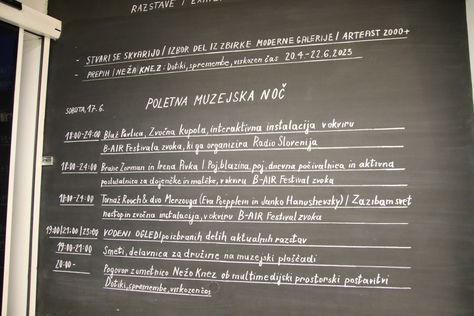 RAZSTAVE /
- STVARI SE SKVARIJO / IZBOR DEL IZ ZBIRKE MODERNE GALERIJE / ARTEAST 2000+
- PREPIH / NEŽA KNEZ: Dotiki, spremembe, viskozen čas 20.4.-22.6.2023
POLETNA MUZEJSKA NOČ
SOBOTA, 17.6.
18:00-24:00 Blaž Pavlica, Zvočna kupola, interaktivna instalacija v okviru
B-AIR Festivala zvoka, ki ga organizira Radio Slovenija
18:00-24:00 Brane Zorman in Irena Pivka / Poj_blazina, poj_dnevna počivalnica in aktivna
poslušalnica za dojenčke in matéke, v okviru B-AIR Festival zvoka
18:00-24:00 Tomaž Rouch & dvo Merzouga (Eva Poepplem in Janko Hanushevsky) / Zazibam svet
nastop in zvočna instalacija, v okviru B-AIR Festival zvoka
19:00/21:00/23:00 VODENI OGLEDI po izbranih delih aktualnih razstav
19:00-21:00 Smeti, delavnica za družine na muzejski ploščadi
20:00- Pogovor z umetnico Nežo Knez ob multimedijski prostorski postavitvi
Dotiki, spremembe, viskozen čas